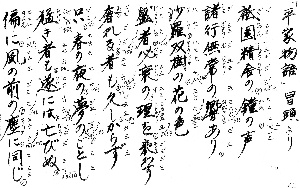 平家物語 冒頭より
祇園精舎の鐘の声
諸行無常の響あり
沙羅双樹の花の色
盛者必衰の理を表わす
奢れる者も久しからず
只春の夜の夢のごとし
猛き者も遂には亡びぬ
偏に風の前の塵に同じ。